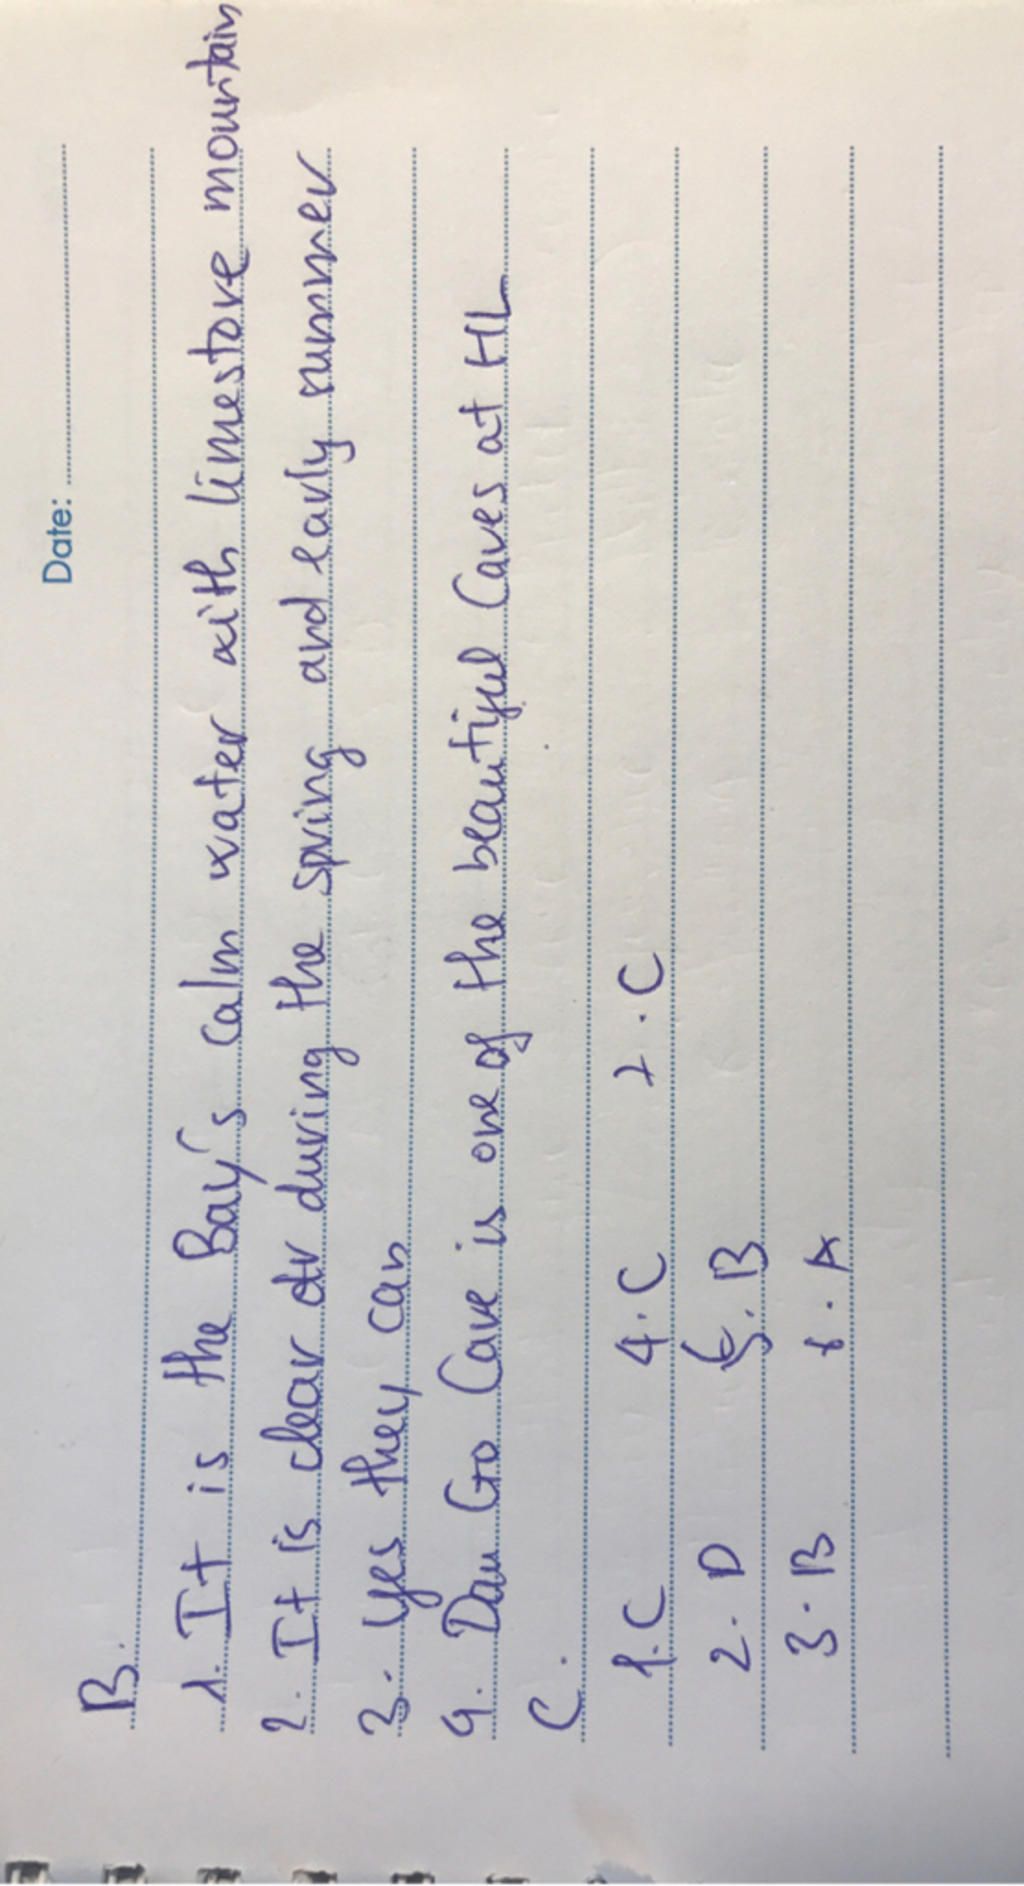 Date:
B.
1. It is the Bay's calm water with limestore mountain
2. It is clear dr during the spring and early summer
3. Yes they can
4. Dau Go Cave is one of the beautiful Caves at HL
C.
1. C 4. C 7. C
2. D 5. B
3. B 6. A